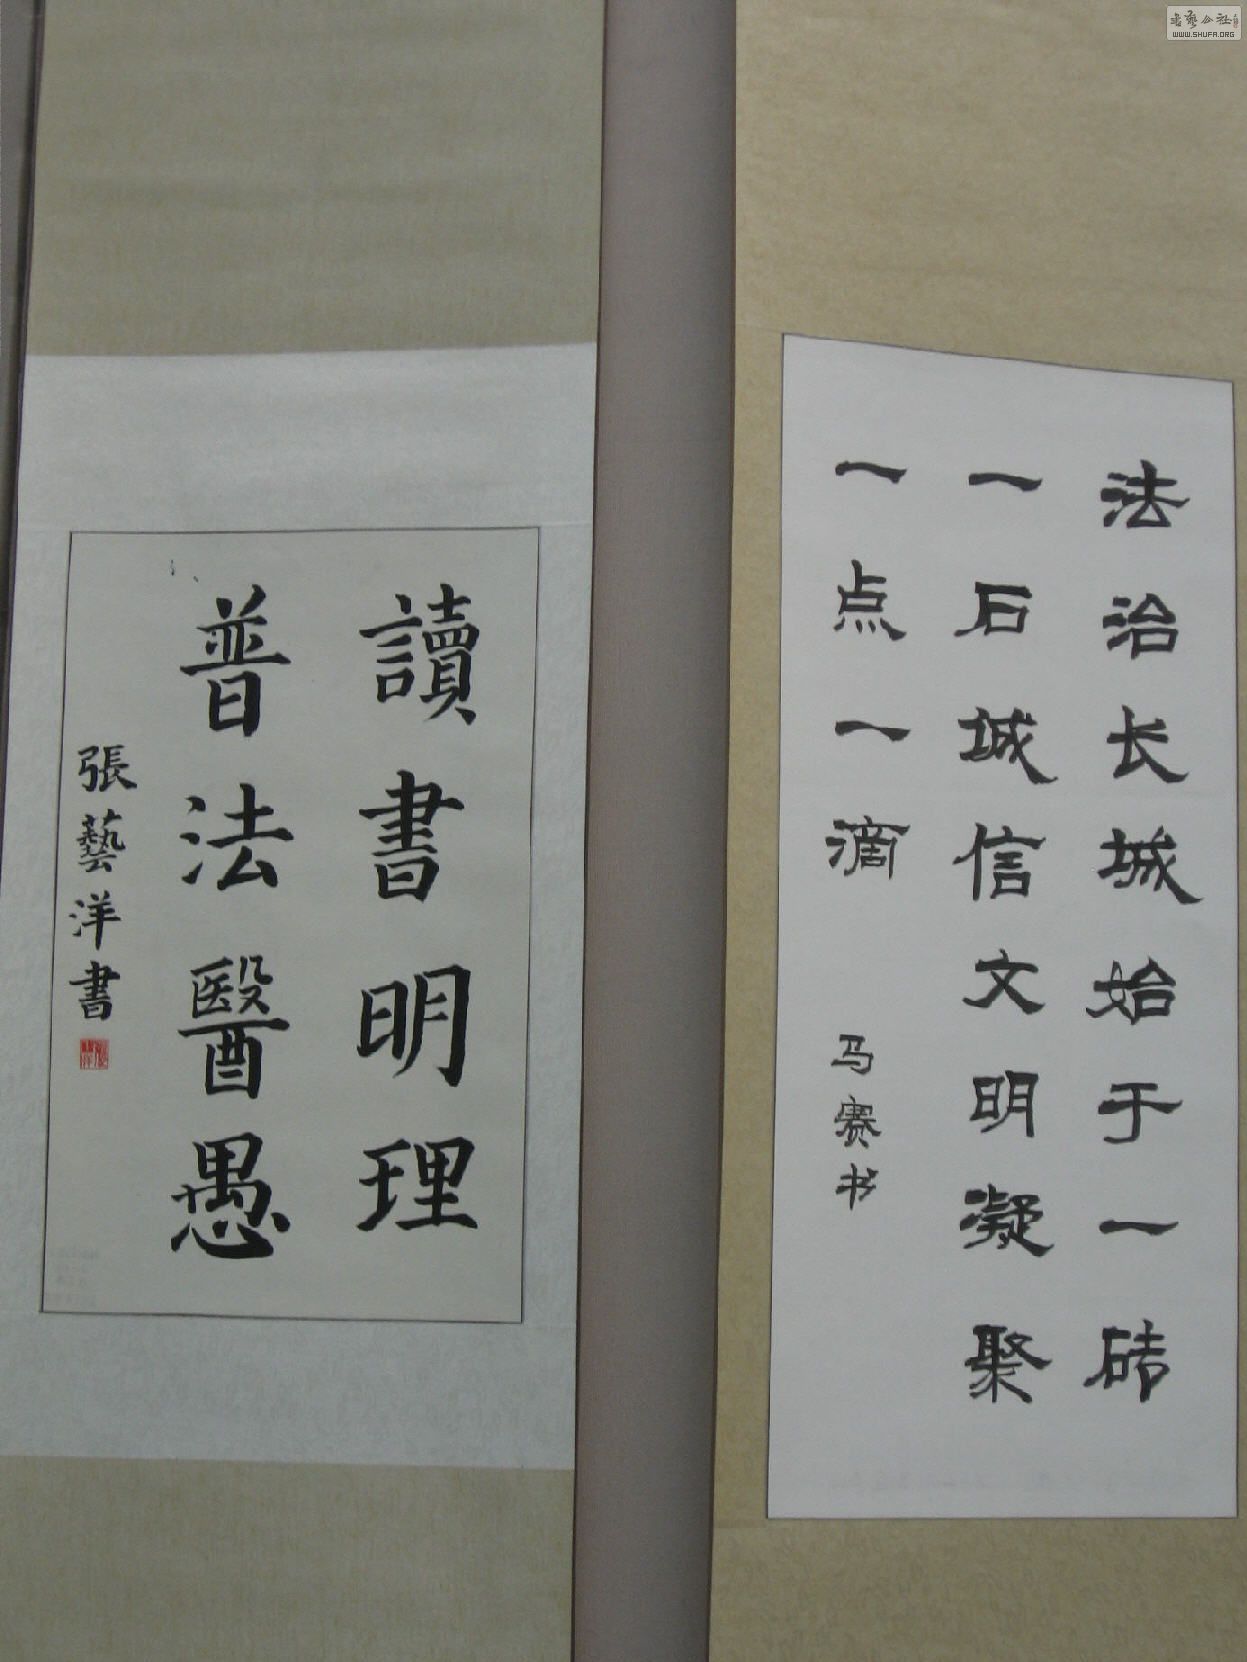 法治长城始于一砖
一石城信文明凝聚
一点一滴
马赛书
讀書明理
普法醫愚
張藝洋書
书艺公社
WWW.SHUFA.ORG